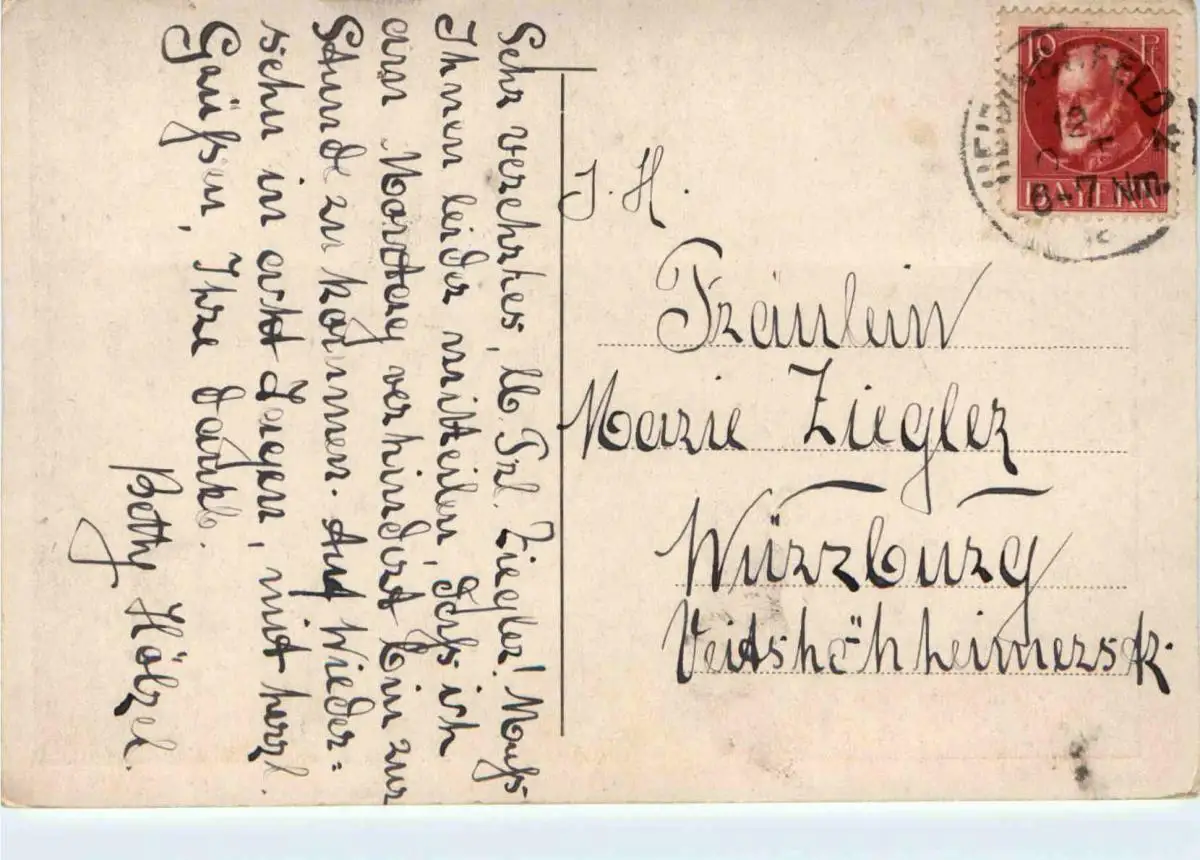 Sehr verehrtes, lb. Frl. Ziegler! Muß
Ihnen leider mitteilen, daß ich
am Montag verhindert bin zur
Stunde zu kommen. Auf Wieder=
sehn in acht Tagen, mit herzl.
Grüßen, Ihre dankb.
Betty Hölzel.
J. H.
Fräulein
Marie Ziegler
Würzburg
Veitshöchheimerstr.
10 Pf
BAYERN
HEIDINGSFELD
12
6-7 Nm.